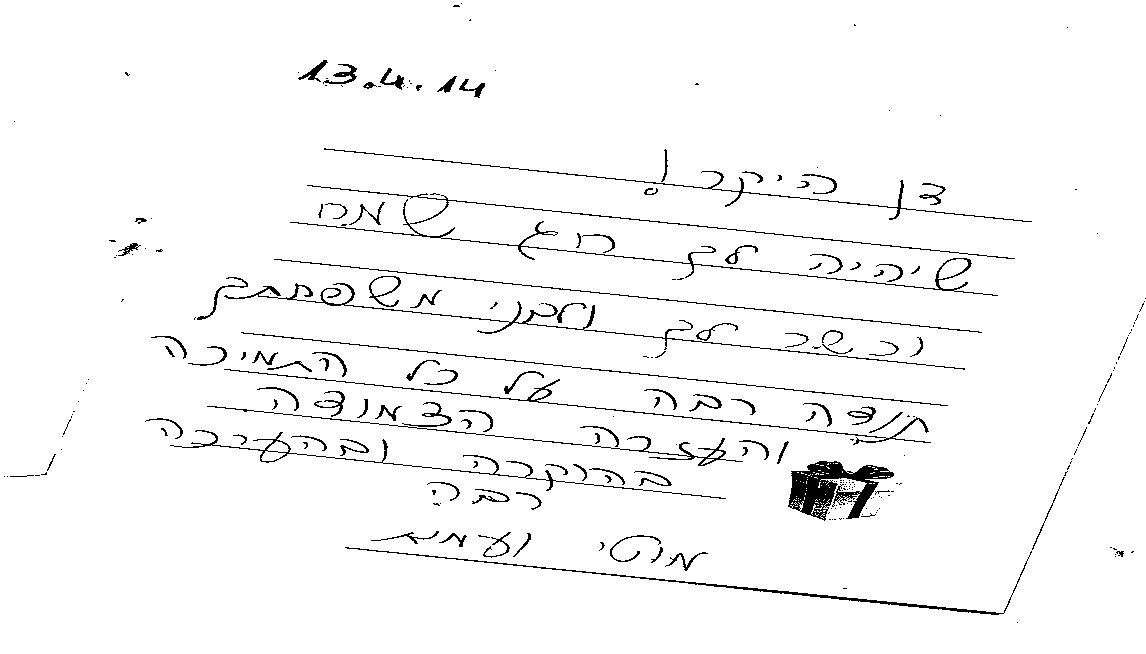 13.4.14
דן היקר!
שיהיה לך חג שמח
וכשר לך ולבני משפחתך
תודה רבה על כל התמיכה
והעזרה הצמודה
בהוקרה ובהערכה
רבה
מוטי ועמית